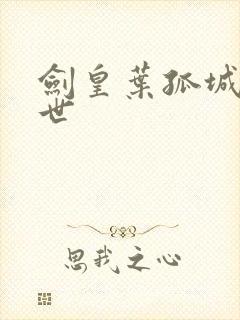 劍皇葉孤城
世
思我之心